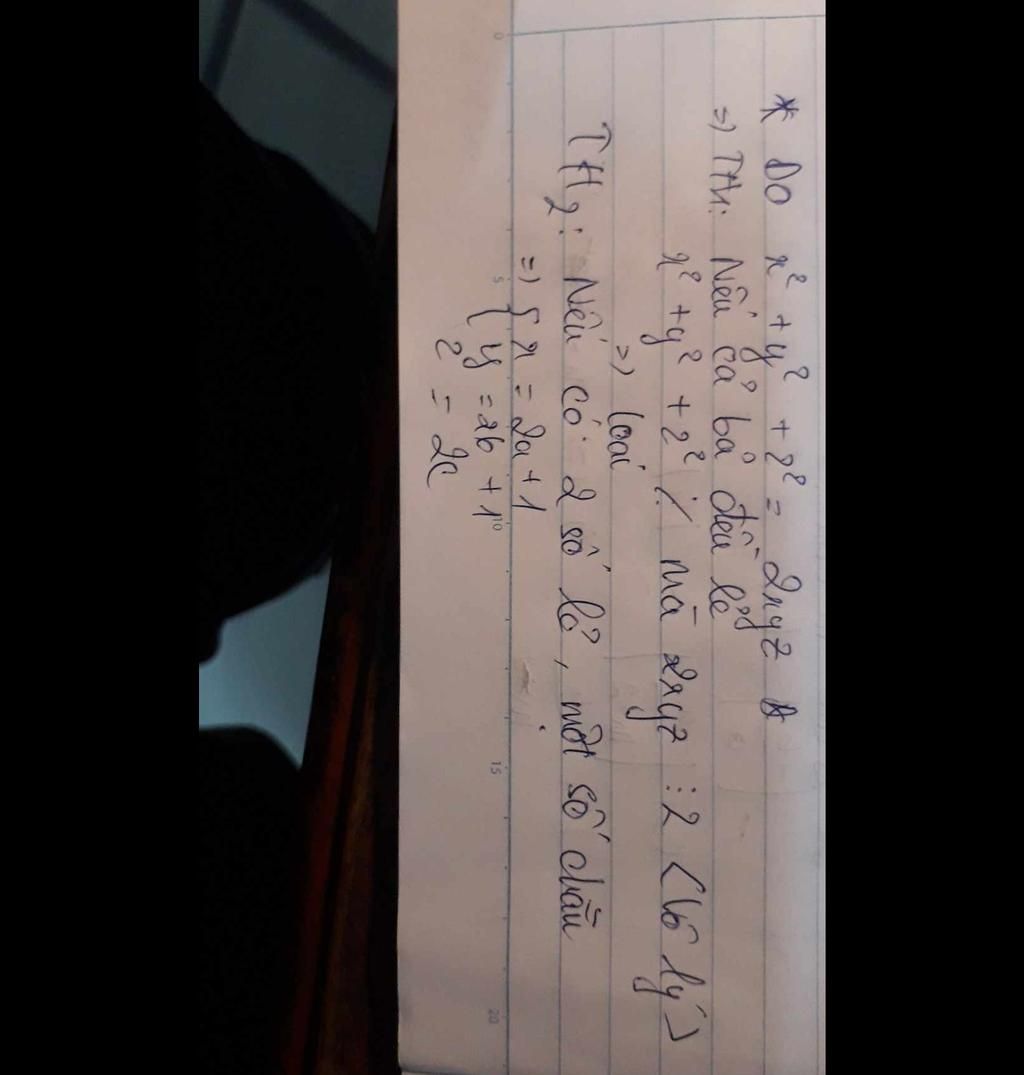 * Do x² + y² + z² = 2xyz
=) TH1: Nếu cả ba đều lẻ
x² + y² + z² ⋮̸ mà 2xyz ⋮ 2 <vô lý>
=) loại
TH2: Nếu có 2 số lẻ, một số chẵn
=) { x = 2a + 1
{ y = 2b + 1
z = 2c
0 5 10 15 20